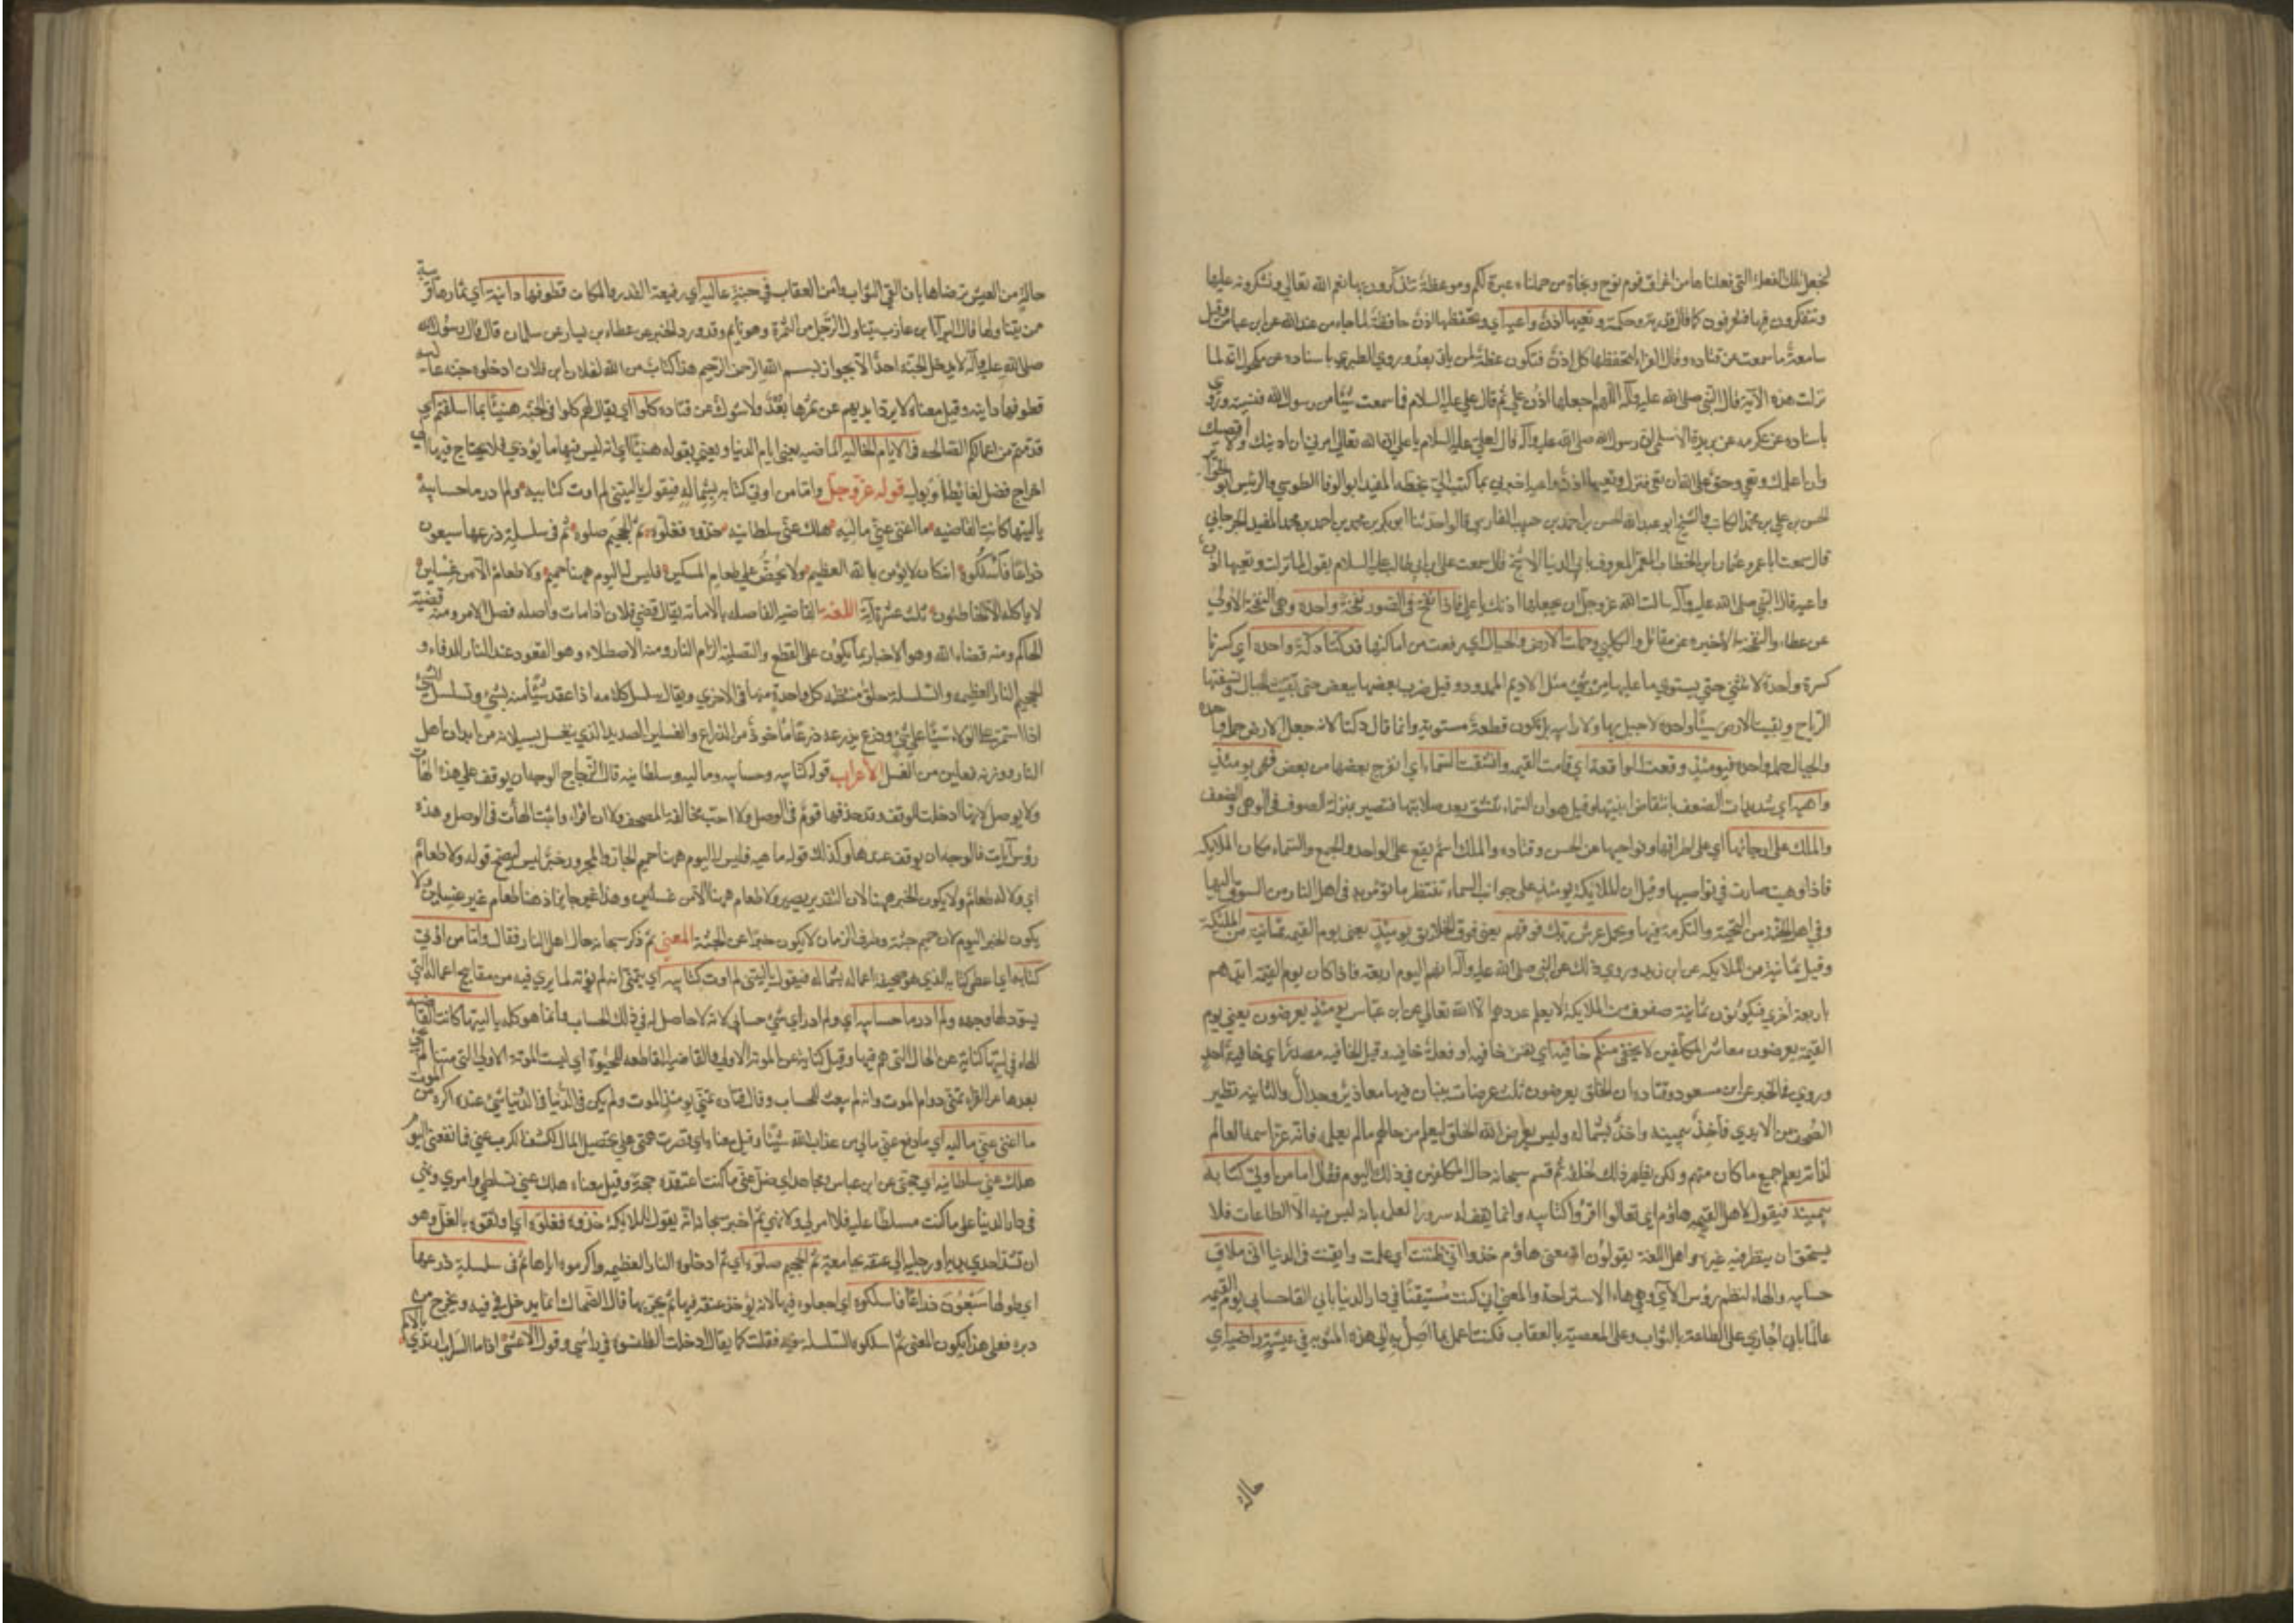 لنجعل تلك الفعلة التي فعلناها من اغراق قوم نوح ونجاة من حملناه عبرة لكم وموعظة تتذكرون بها نعم الله تعالى وتشكرونه عليها
وتتفكرون فيها فتعرفون كمال قدرته وحكمته وتعيها اذن واعية اي وتحفظها اذن حافظة لما جاء من عند الله عن ابن عباس وقيل
سامعة ما سمعت عن قتاده وقال الفراء لتحفظها كل اذن فتكون عظة لمن ياتي بعد وروي الطبري باسناده عن مكحول انه لما
نزلت هذه الآية قال النبي صلى الله عليه وآله اللهم اجعلها اذن علي ثم قال علي عليه السلام فما سمعت شيئا من رسول الله فنسيته وروي
باسناده عن عكرمه عن بريدة الاسلمي ان رسول الله صلى الله عليه وآله قال لعلي عليه السلام يا علي ان الله تعالى امرني ان ادنيك ولا اقصيك
وان اعلمك وتعي وحق على الله ان تعي فنزل وتعيها اذن واعيه اخبرني بما كتب الي بخطه المفيد ابو الوفا الطوسي والرئيس ابو الجوائز
الحسن بن علي بن محمد الكاتب والشيخ ابو عبد الله الحسن بن احمد بن حبيب الفارسي قالوا حدثنا ابو بكر بن محمد بن احمد بن محمد المفيد الجرجاني
قال سمعت ابا عمرو عثمان بن الخطاب المعمر المعروف بابي الدنيا الاشج قال سمعت علي بن ابي طالب عليه السلام يقول لما نزلت وتعيها اذن
واعيه قال النبي صلى الله عليه وآله سالت الله عز وجل ان يجعلها اذنك يا علي فاذا نفخ في الصور نفخة واحده وهي النفخة الاولي
عن عطاء والنفخة الاخيره عن مقاتل والكلبي وحملت الارض والجبال اي رفعت من اماكنها فدكتا دكة واحده اي كسرتا
كسرة واحدة لا تثنى حتي يستوي ما عليها من شيء مثل الاديم الممدود وقيل ضرب بعضها ببعض حتى تفتت الجبال ونسفتها
الرياح وبقيت الارض شيئا واحدا لا جبل بها ولا رابيه بل تكون قطعة مستوية وانما قال دكتا لانه جعل الارض جملة واحده
والجبال جملة واحده فيومئذ وقعت الواقعة اي قامت القيمه وانشقت السماء اي انفرج بعضها من بعض فهي يومئذ
واهيه اي شديدات الضعف بانتقاض ابنيتها وقيل هو ان السماء تنشق بعد صلابتها فتصير بمنزلة الصوف في الوهي والضعف
والملك على ارجائها اي على اطرافها ونواحيها عن الحسن وقتاده والملك اسم يقع على الواحد والجمع والسماء مكان الملايكه
فاذا وهت صارت في نواحيها وقيل ان الملايكة يومئذ على جوانب السماء تنتظر ما تؤمر به في اهل النار من السوق اليها
وفي اهل الجنة من التحية والتكرمة فيها ويحمل عرش ربك فوقهم يعني فوق الخلايق يومئذ يعني يوم القيمه ثمانية من الملئكة
وقيل ثمانية من الملايكه عن ابن زيد وروي ذلك عن النبي صلى الله عليه وآله انهم اليوم اربعة فاذا كان يوم القيمة ايدهم
باربعة اخري فيكونون ثمانية صفوف من الملايكة لا يعلم عددهم الا الله تعالى عن ابن عباس يومئذ يعرضون يعني يوم
القيمة يعرضون معاشر المكلفين لا يخفى منكم خافية اي نفس خافيه او فعلة خافيه وقيل الخافيه مصدر اي خافية احد
وروي في الخبر عن ابن مسعود وقتاده ان الخلق يعرضون ثلث عرضات ثنتان فيهما معاذير وجدال والثالثه تطير
الصحف من الايدي فآخذ بيمينه وآخذ بشماله وليس يعرض الله الخلق ليعلم من حالهم مالم يعلمه فانه عز اسمه العالم
لذاته يعلم جميع ما كان منهم ولكن ليظهر ذلك لخلقه ثم قسم سبحانه حال المكلفين في ذلك اليوم فقال فاما من اوتي كتابه
بيمينه فيقول لاهل القيمه هاؤم اي تعالوا اقرؤا كتابيه وانما يقوله سرورا لعلمه بانه ليس فيه الا الطاعات فلا
يستحي ان ينظر فيه غيره واهل اللغة يقولون ان معنى هاؤم خذوا اني ظننت اي علمت وايقنت في الدنيا اني ملاق
حسابيه والهاء لنظم رؤس الآي وهي هاء الاستراحة والمعنى اني كنت مستيقنا في دار الدنيا باني القى حسابي يوم القيمه
عالما باني اجازي على الطاعة بالثواب وعلى المعصية بالعقاب فكنت اعمل بما اصل به الي هذه المثوبه فهو في عيشة راضية اي
حالة
حالة من العيش يرضاها بان لقي الثواب وامن العقاب في جنة عاليه اي رفيعة القدر والمكان قطوفها دانية اي ثمارها قريبة
ممن يتناولها قال البراء بن عازب يتناول الرجل من الثمرة وهو نايم وقد ورد الخبر عن عطاء بن يسار عن سلمان قال قال رسول الله
صلى الله عليه وآله لا يدخل الجنة احد الا بجواز بسم الله الرحمن الرحيم هذا كتاب من الله لفلان ابن فلان ادخلوه جنة عاليه
قطوفها دانيه وقيل معناه لا يرد ايديهم عن ثمرها بعد ولا شوك عن قتاده كلوا اي يقال لهم كلوا في الجنه هنيئا بما اسلفتم اي
قدمتم من اعمالكم الصالحه في الايام الخاليه الماضيه يعني ايام الدنيا ويعني بقوله هنيئا اي انه ليس فيها ما يؤذي فلا يحتاج فيه الي
اخراج فضل لغائط او بول قوله عز وجل واما من اوتي كتابه بشماله فيقول ياليتني لم اوت كتابيه ولم ادر ما حسابيه
ياليتها كانت القاضيه ما اغنى عني ماليه هلك عني سلطانيه خذوه فغلوه ثم الجحيم صلوه ثم في سلسلة ذرعها سبعون
ذراعا فاسلكوه انه كان لا يؤمن بالله العظيم ولا يحض على طعام المسكين فليس له اليوم ههنا حميم ولا طعام الا من غسلين
لا ياكله الا الخاطئون ثلث عشرة آية اللغه القاضيه الفاصله بالاماته يقال قضى فلان اذا مات واصله فصل الامر ومنه قضية
الحاكم ومنه قضاء الله وهو الاخبار بما يكون على القطع والتصلية الزام النار ومنه الاصطلاء وهو القعود عند النار للدفاء و
الجحيم النار العظيمه والسلسلة حلق منتظمه كل واحدة منها في الاخري ويقال سلسل كلامه اذا عقد شيئا منه بشيء وتسلسل الشيء
اذا استمر على الولاء شيئا على شيء وذرع يذرعه ذرعا ماخوذ من الذراع والغسلين الصديد الذي ينغسل بسيلانه من ابدان اهل
النار ووزنه فعلين من الغسل الاعراب قوله كتابيه وحسابيه وماليه وسلطانيه قال الزجاج الوجه ان يوقف على هذه الهاآت
ولا يوصل لانها ادخلت للوقف وقد حذفها قوم في الوصل ولا احب مخالفة المصحف ولا ان اقراء واثبت الهاآت في الوصل وهذه
رؤس آيات فالوجه ان يوقف عندها وكذلك قوله ما هيه فليس له اليوم ههنا حميم الجار والمجرور خبر ليس ليصح قوله ولا طعام
اي ولا له طعام ولا يكون الخبر ههنا لان التقدير يصير ولا طعام ههنا الا من غسلين وهذا غير جايز اذ هنا طعام غير غسلين ولا
يكون الخبر اليوم لان حميم جثة وظرف الزمان لا يكون خبرا عن الجثة المعنى ثم ذكر سبحانه حال اهل النار فقال واما من اوتي
كتابه اي اعطي كتابه الذي هو صحيفة اعماله بشماله فيقول ياليتني لم اوت كتابيه اي يتمنى انه لم يؤته لما يري فيه من مقابح اعماله التي
يسود لها وجهه ولم ادر ما حسابيه اي ولم ادر اي شيء حسابي لانه لا حاصل له في ذلك الحساب وانما هو كله عليه ياليتها كانت القاضيه
الهاء في ليتها كناية عن الحال التي هم فيها وقيل كناية عن الموتة الاولى والقاضيه القاطعه للحيوة اي ليت الموتة الاولي التي متنا لم نحي
بعدها عن الفراء تمنى دوام الموت وانه لم يبعث للحساب وقال قتاده تمنى يومئذ الموت ولم يكن في الدنيا شيء عنده اكره من الموت
ما اغنى عني ماليه اي ما دفع عني مالي من عذاب الله شيئا وقيل معناه اي قصرت همتي على تحصيل المال ليكشف الكرب عني فما نفعني اليوم
هلك عني سلطانيه اي حجتي عن ابن عباس ومجاهد اي ضل عني ما كنت اعتقده حجة وقيل معناه هلك عني تسلطي وامري ونهيي
في دار الدنيا على ما كنت مسلطا عليه فلا امر لي ولا نهي ثم اخبر سبحانه انه يقول للملايكة خذوه فغلوه اي اوثقوه بالغل وهو
ان تشد احدي يديه او رجليه الي عنقه بجامعة ثم الجحيم صلوه اي ثم ادخلوه النار العظيمه والزموه اياها ثم في سلسلة ذرعها
اي طولها سبعون ذراعا فاسلكوه اي اجعلوه فيها لانه يؤخذ عنقه فيها ثم يجر بها قال الضحاك انما يدخل في فيه ويخرج من
دبره فعلى هذا يكون المعنى ثم اسلكوه السلسله فيه فقلب كما يقال ادخلت القلنسوة في راسي وقول الاعشى اذا ما السراب ارتدي بالاكم